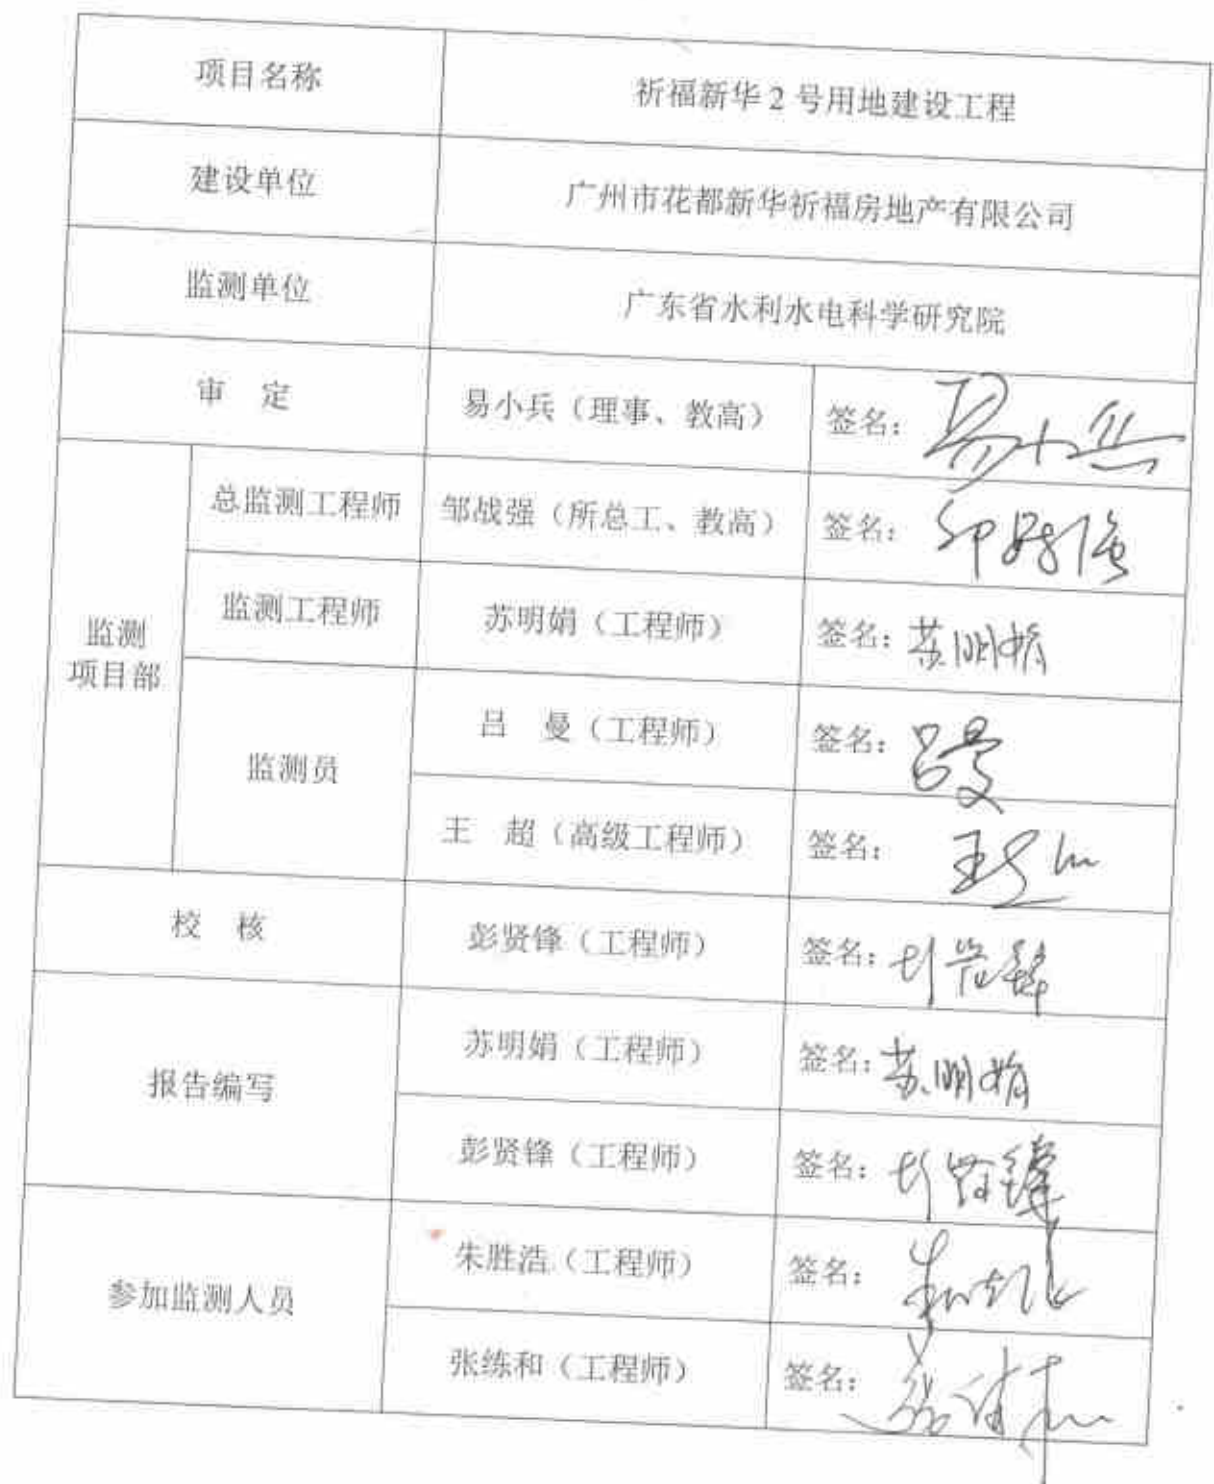 项目名称 祈福新华2号用地建设工程
建设单位 广州市花都新华祈福房地产有限公司
监测单位 广东省水利水电科学研究院
审 定 易小兵（理事、教高） 签名：易小兵
监测
项目部
总监测工程师 邹战强（所总工、教高） 签名：邹战强
监测工程师 苏明娟（工程师） 签名：苏明娟
监测员
吕 曼（工程师） 签名：吕曼
王 超（高级工程师） 签名：王超
校 核 彭贤锋（工程师） 签名：彭贤锋
报告编写
苏明娟（工程师） 签名：苏明娟
彭贤锋（工程师） 签名：彭贤锋
参加监测人员
朱胜浩（工程师） 签名：
张练和（工程师） 签名：张练和